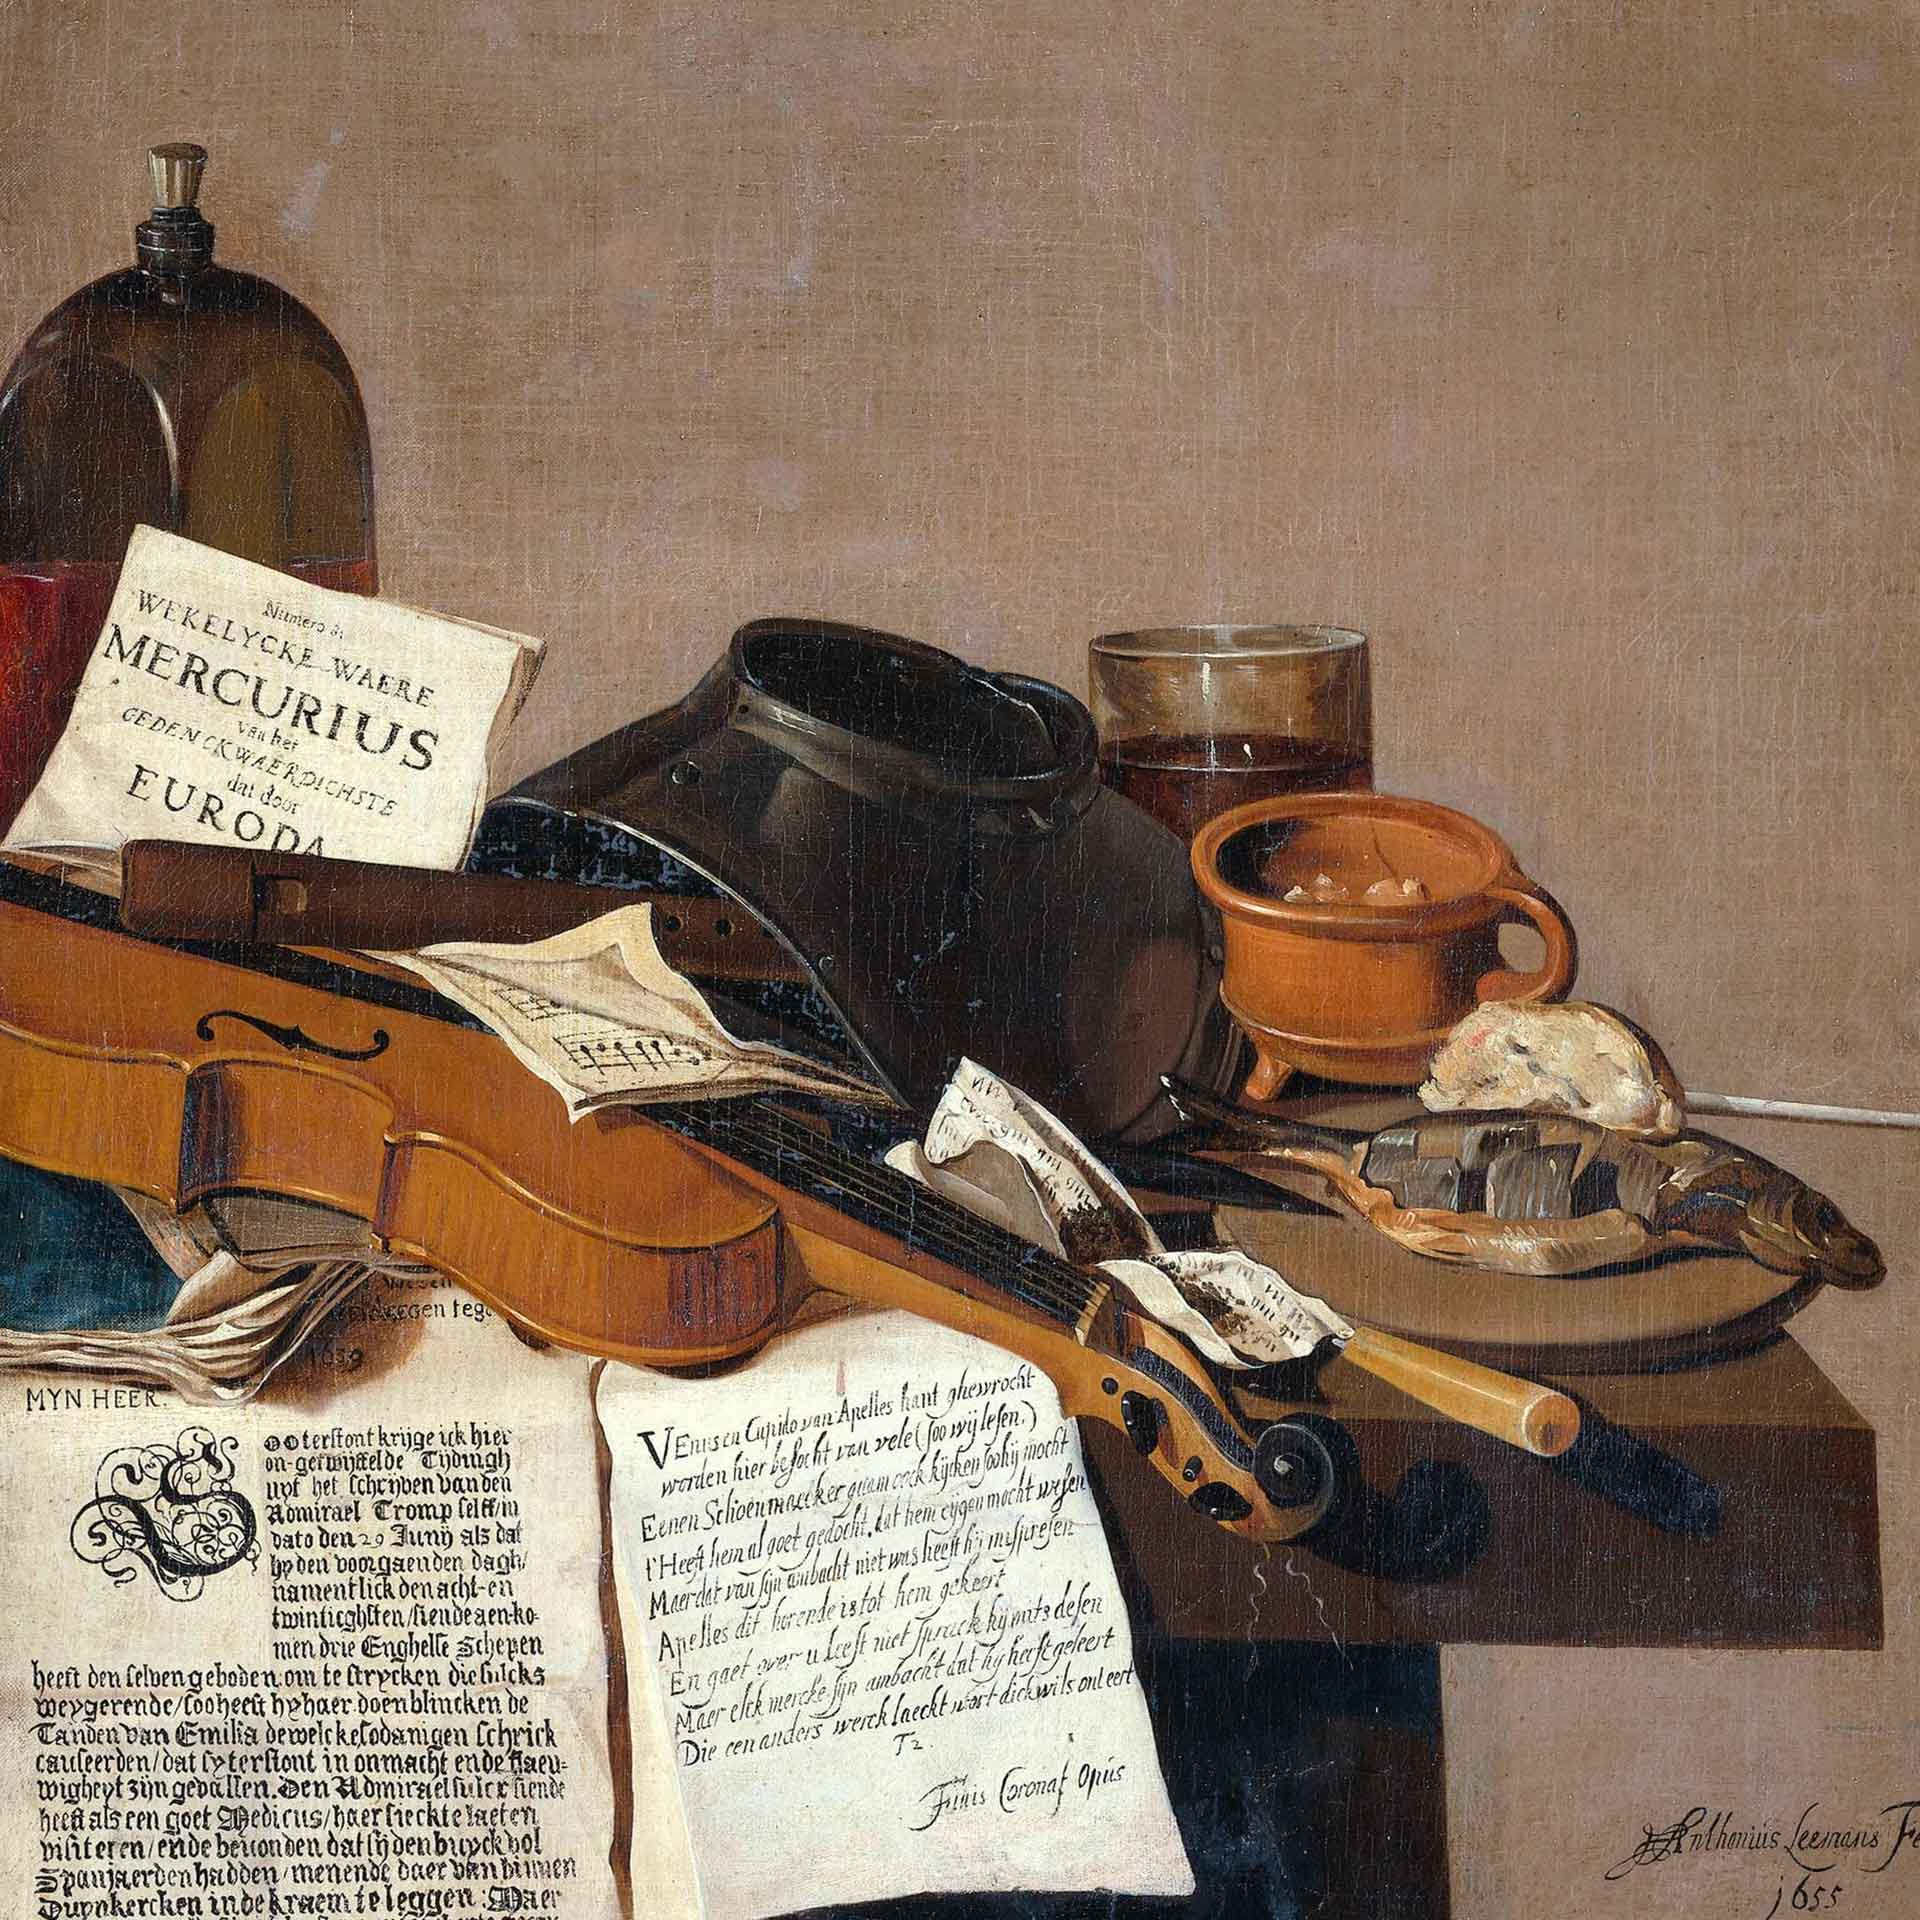 Numero 8:
WEKELYCKE WAERE
MERCURIUS
van het
GEDENCKWAERDICHSTE
dat door
EUROPA
tegen tege
1639
MYN HEER.
S
ooterstont krijge ick hier
on-getwijffelde Tijdingh
uyt het schrijven van den
Admirael Tromp selff/in
dato den 29 Junij als dat
hy den voorgaenden dagh/
namentlick den acht-en
twinticghsten/siende aen-ko-
men drie Enghelse Schepen
heeft den selven geboden om te strycken die sulcks
weygerende/soo heeft hy haer doen blincken de
Tanden van Emilia de welcke sodanigen schrick
causeerden/dat sy terstont in onmacht ende flaeu-
wigheyt zijn gevallen. Den Admirael sulcx siende
heeft als een goet Medicus/haer sieckte laeten
visiteren/ende bevonden dat sy den buyck vol
Spanjaerden hadden/menende daer van binnen
Duynkercken in de kraem te leggen: Maer
VEnus en Cupido van Apelles hant ghewrocht
worden hier besocht van vele (soo wij lesen.)
Eenen Schoenmaecker quam oock kijcken soo hij mocht
t'Heeft hem al goet gedocht, dat hem eijgen mocht wesen
Maer dat van sijn ambacht niet was heeft hij mispresen
Apelles dit horende is tot hem gekeert
En gaet over u Leest niet sprack hij mits desen
Maer elck mercke sijn ambacht dat hy heeft geleert
Die een anders werck laeckt wort dickwils onteert
T2.
Finis Coronat Opus
Anthonius Leemans Fe
1655